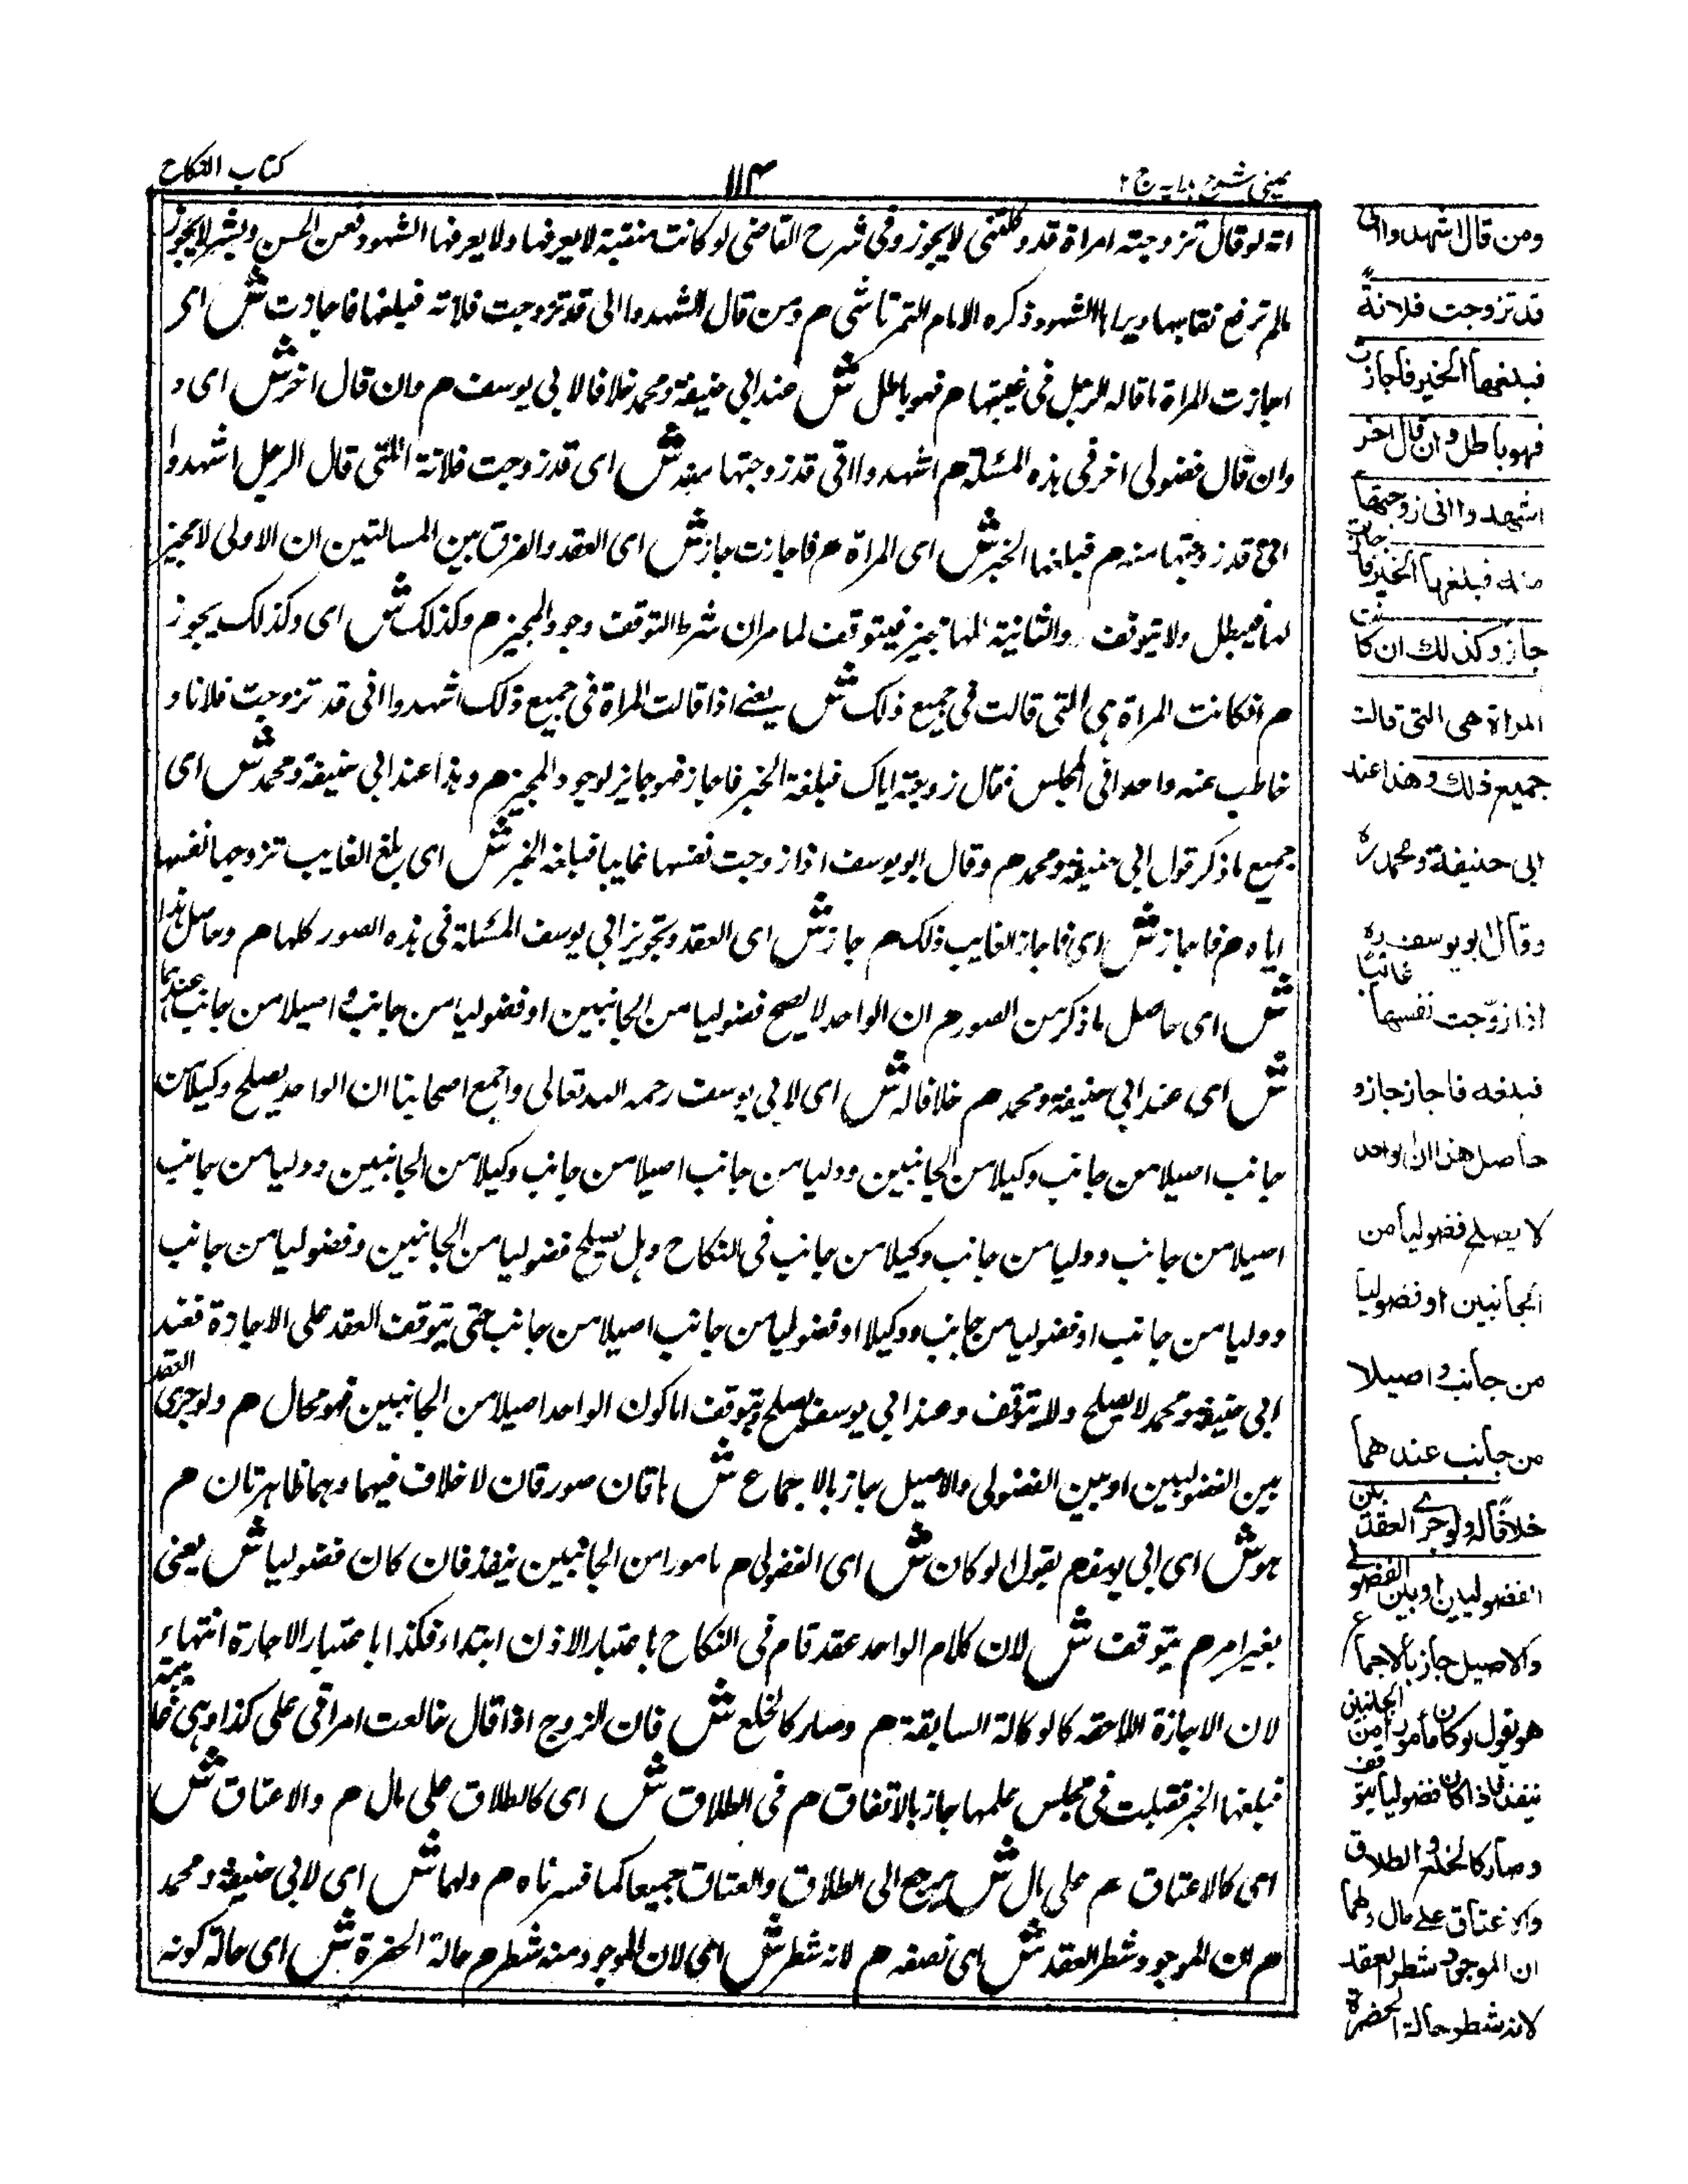 عينى شرح هدايه ج ٢
١١٣
كتاب النكاح
انه لو قال تزوجته امراة قد وكلتنى لا يجوز وفى شرح القاضى لو كانت منقبة لا يعرفها ولا يعرفها الشهود فعن الحسن وبشر لا يجوز
مالم ترفع نقابها ويراها الشهود ذكره الامام التمرتاشى م ومن قال اشهدوا انى قد تزوجت فلانة فبلغها فاجازت ش اى
اجازت المراة ما قاله الرجل فى غيبتها م فهو باطل ش عند ابى حنيفة ومحمد خلافا لابى يوسف م وان قال اخر ش اى و
وان قال فضولى اخر فى هذه المسئلة م اشهدوا انى قد زوجتها منه ش اى قد زوجت فلانة اللتى قال الرجل اشهدوا
انى قد زوجتها منه م فبلغها الخبر ش اى المراة م فاجازت جاز ش اى العقد والفرق بين المسالتين ان الاولى لا مجيز
لها فيبطل ولا يتوقف والثانية لها مجيز فيتوقف لما مر ان شرط التوقف وجود المجيز م وكذلك ش اى وكذلك يجوز
م ان كانت المراة هى التى قالت فى جميع ذلك ش يعنى اذا قالت المراة فى جميع ذلك اشهدوا انى قد تزوجت فلانا و
خاطب عنه واحد فى المجلس فقال زوجته اياك فبلغة الخبر فاجاز فهو جايز لوجود المجيز م وهذا عند ابى حنيفة ومحمد ش اى
جميع ما ذكر قول ابى حنيفة ومحمد م وقال ابو يوسف اذا زوجت نفسها غايبا فبلغه الخبر ش اى بلغ الغايب تزوجها نفسها
اياه م فاجاز ش اى فاجاز الغايب ذلك م جاز ش اى العقد وتجويز ابى يوسف المسئلة فى هذه الصور كلها م وحاصل هذا
ش اى حاصل ما ذكر من الصور م ان الواحد لا يصح فضوليا من الجانبين او فضوليا من جانب واصيلا من جانب عندهما
ش اى عند ابى حنيفة ومحمد م خلافا له ش اى لابى يوسف رحمه الله تعالى واجمع اصحابنا ان الواحد يصلح وكيلا من
جانب اصيلا من جانب وكيلا من الجانبين ووليا من جانب اصيلا من جانب وكيلا من الجانبين ووليا من جانب
اصيلا من جانب ووليا من جانب وكيلا من جانب فى النكاح وهل يصلح فضوليا من الجانبين وفضوليا من جانب
ووليا من جانب او فضوليا من جانب ووكيلا او فضوليا من جانب اصيلا من جانب حتى يتوقف العقد على الاجازة فعند
ابى حنيفة ومحمد لا يصلح ولا يتوقف وعند ابى يوسف يصلح ويتوقف اما كون الواحد اصيلا من الجانبين فهو محال م ولو جرى العقد
بين الفضوليين او بين الفضولى والاصيل جاز بالاجماع ش هاتان صورتان لا خلاف فيهما وهما ظاهرتان م
هو ش اى ابى يوسف م يقول لو كان ش اى الفضولى م مامورا من الجانبين ينفذ فان كان فضوليا ش يعنى
بغير امر م يتوقف ش لان كلام الواحد عقد تام فى النكاح باعتبار الاذن ابتداء فكذا باعتبار الاجازة انتهاء
لان الاجازة اللاحقه كالوكالة السابقة م وصار كالخلع ش فان الزوج اذا قال خالعت امراتى على كذا وهى غايبة
فبلغها الخبر فقبلت فى مجلس علمها جاز بالاتفاق م فى الطلاق ش اى كالطلاق على مال م والاعتاق ش
اى كالاعتاق م على مال ش يرجع الى الطلاق والعتاق جميعا كما فسرناه م ولهما ش اى لابى حنيفة ومحمد
م ان الموجود شطر العقد ش اى نصفه م لانه شطر ش اى لان الموجود منه شطر م حالة الحضرة ش اى حالة كونه
ومن قال اشهدوا انى
قد تزوجت فلانةً
فبلغها الخبر فاجازت
فهو باطل وان قال اخر
اشهدوا انى زوجتها
منه فبلغها الخبر فاجازت
جاز وكذلك ان كانت
المراة هى التى قالت
جميع ذلك وهذا عند
ابى حنيفة ومحمد ره
وقال ابو يوسف ره
اذا زوّجت نفسها غائبًا
فبلغه فاجاز جاز و
حاصل هذا ان الواحد
لا يصلح فضوليا من
الجانبين او فضوليا
من جانب واصيلا
من جانب عندهما
خلافًا له ولو جرے العقد بين
الفضوليين او بين الفضولے
والاصيل جاز بالاجماع
هو يقول لو كان مأمورا من الجانبين
ينفذ فاذا كان فضوليا يتوقف
وصار كالخلع والطلاق
والاعتاق علے مال ولهما
ان الموجود شطر العقد
لانه شطر حالة الحضرة